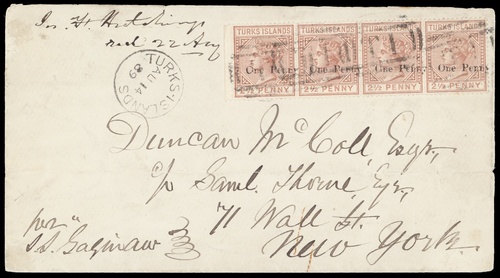 Jos. H. Hutchings
recd 22 Aug
TURKS ISLANDS TURKS ISLANDS TURKS ISLANDS TURKS ISLANDS
One Penny One Penny One Penny One Penny
2½ PENNY 2½ PENNY 2½ PENNY 2½ PENNY
TURKS-ISLANDS
AU 14
89
Duncan McColl, Esqr,
c/o Saml. Thorne, Esqr,
71 Wall St.
New York.
per
S.S. Saginaw